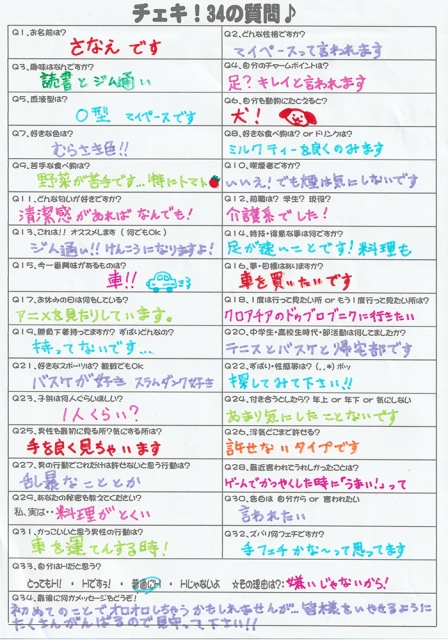 チェキ！34の質問♪
Q1、お名前は？
さなえ です
Q2、どんな性格ですか？
マイペースって言われます
Q3、趣味はなんですか？
読書と ジム通い
Q4、自分のチャームポイントは？
足？ キレイと言われます
Q5、血液型は？
O型 マイペースです
Q6、自分を動物にたとえると？
犬！
Q7、好きな色は？
むらさき色!!
Q8、好きな食べ物は？ or ドリンクは？
ミルクティーを良くのみます
Q9、苦手な食べ物は？
野菜が苦手です...特にトマト
Q10、喫煙者ですか？
いいえ！でも煙は気にしないです
Q11、どんな匂いが好きですか？
清潔感があれば なんでも！
Q12、前職は？ 学生？ 現役？
介護系でした！
Q13、これは!! オススメします（何でもOK）
ジム通い!! けんこうになりますよ！
Q14、特技・得意な事は何ですか？
足が速いことです！料理も
Q15、今一番興味があるものは？
車!!
Q16、夢・目標はありますか？
車を買いたいです
Q17、お休みの日は何をしている？
アニメを見たりしています。
Q18、1度は行って見たい所 or もう1度行って見たい所は？
クロアチアのドゥブロブニクに行きたい
Q19、勝負下着持ってますか？ ずばりどんなの？
持ってないです...
Q20、中学生・高校生時代・部活動は何してましたか？
テニスとバスケと帰宅部です
Q21、好きなスポーツは？ 観戦でもOK
バスケが好き スラムダンク好き
Q22、ずばり・性感帯は？（..*）ポッ
探してみて下さい!!
Q23、子供は何人ぐらいほしい？
1人くらい？
Q24、付き合うとしたら？ 年上 or 年下 or 気にしない
あまり気にしたことないです
Q25、男性を最初に見る所？気にする所は？
手を良く見ちゃいます
Q26、浮気どこまで許せる？
許せないタイプです
Q27、男の行動でこれだけは許せないと思う行動は？
乱暴なこととか
Q28、最近言われてうれしかったことは？
ゲームでかつやくした時に「うまい！」って
Q29、あなたの秘密を教えてください？
私、実は・・料理がとくい
Q30、告白は 自分から or 言われたい
言われたい
Q31、かっこいいと思う男性の行動は？
車を運てんする時！
Q32、ズバリ何フェチですか？
手フェチかな〜って思ってます
Q33、自分はHだと思う？
とってもH！ ・ Hですぅ！ ・ 普通にH ・ Hじゃないよ ☆その理由は？：嫌いじゃないから！
Q34、最後に何かメッセージをもどうぞ！
初めてのことでオロオロしちゃうかもしれませんが、皆様をいやせるように
たくさんがんばるので見守って下さい!!